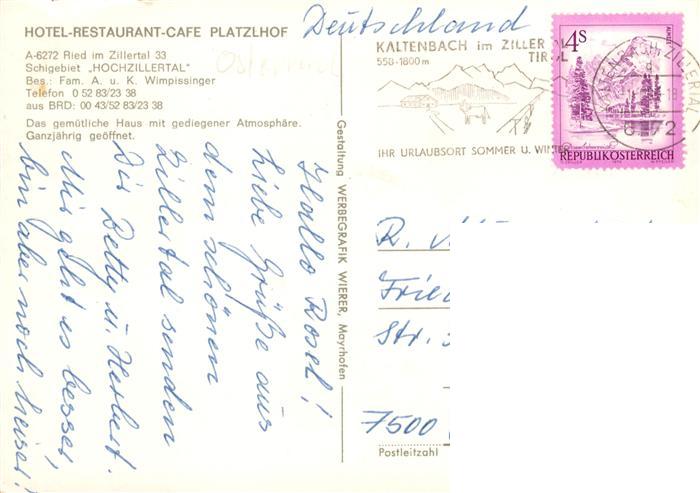 HOTEL-RESTAURANT-CAFE PLATZLHOF
A-6272 Ried im Zillertal 33
Schigebiet „HOCHZILLERTAL"
Bes.: Fam. A. u. K. Wimpissinger
Telefon 0 52 83/23 38
aus BRD: 00 43/52 83/23 38
Das gemütliche Haus mit gediegener Atmosphäre.
Ganzjährig geöffnet.
Österreich
Deutschland
KALTENBACH im ZILLER
TIROL
558-1800 m
IHR URLAUBSORT SOMMER U. WINTER
4S
REPUBLIK ÖSTERREICH
Gestaltung WERBEGRAFIK WIERER, Mayrhofen
Hallo Rosel!
Liebe Grüße aus
dem schönen
Zillertal senden
Dir Betty u. Herbert.
Mir geht es besser,
bin aber noch heiser!
R.
Str.
7500
Postleitzahl